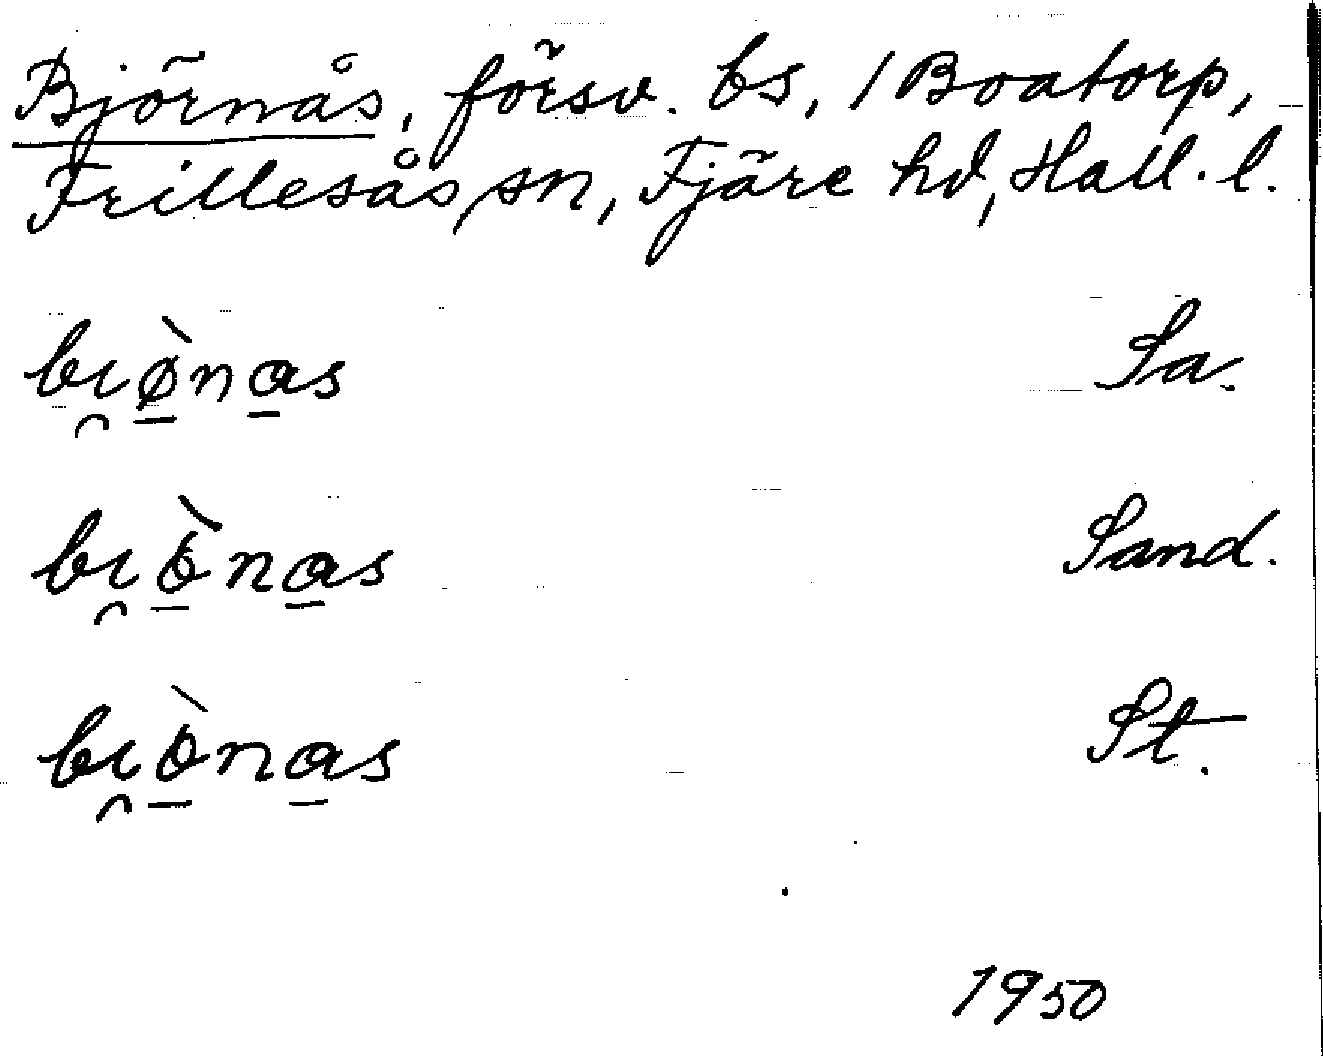 Björnås, försv. bs, / Boatorp,
Frillesås sn, Fjäre hd, Hall. l.
bı̯ø̠̀na̠s Sa.
bı̯ò̠na̠s Sand.
bı̯ò̠na̠s St.
1950